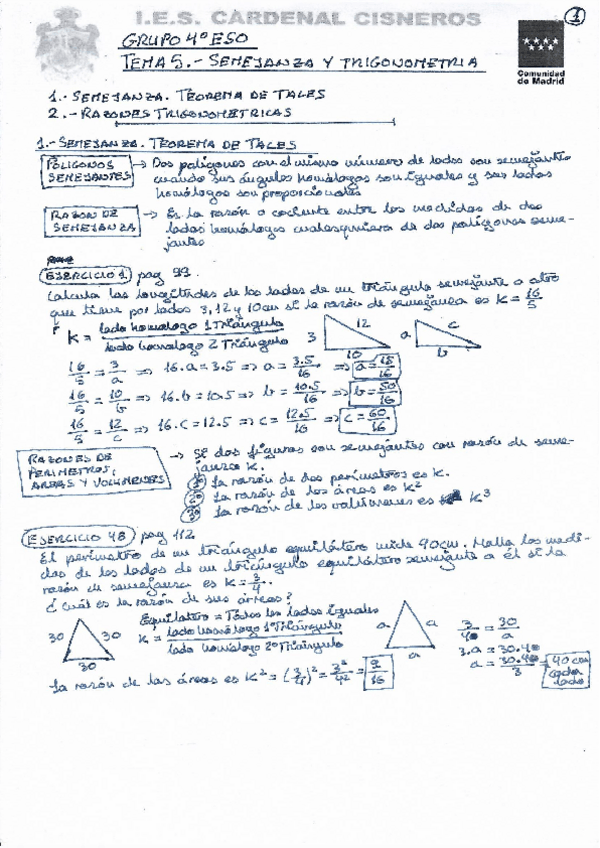 I.E.S. CARDENAL CISNEROS
1
GRUPO 4º ESO
TEMA 5.- SEMEJANZA Y TRIGONOMETRIA
Comunidad
de Madrid
1.- SEMEJANZA. TEOREMA DE TALES
2.- RAZONES TRIGONOMETRICAS
1.- SEMEJANZA. TEOREMA DE TALES
POLIGONOS SEMEJANTES → Dos polígonos con el mismo número de lados son semejantes
cuando sus ángulos homólogos son iguales y sus lados
homólogos son proporcionales
RAZON DE SEMEJANZA → Es la razón o cociente entre las medidas de dos
lados homólogos cualesquiera de dos polígonos seme-
jantes
EJERCICIO 1 pag 99.
Calcula las longitudes de los lados de un triángulo semejante a otro
que tiene por lados 3, 12 y 10cm si la razón de semejanza es K = 16/5
K = lado homólogo 1 Triángulo / lado homólogo 2 Triángulo
3 12 10 a c b
16/5 = 3/a => 16.a = 3.5 => a = 3.5/16 => a = 15/16
16/5 = 10/b => 16.b = 10.5 => b = 10.5/16 => b = 50/16
16/5 = 12/c => 16.c = 12.5 => c = 12.5/16 => c = 60/16
RAZONES DE PERIMETROS, AREAS Y VOLUMENES → Si dos figuras son semejantes con razón de seme-
janza K.
La razón de dos perímetros es K.
La razón de las áreas es K²
La razón de los volúmenes es K³
EJERCICIO 48 pag 112
El perímetro de un triángulo equilátero mide 90cm. Halla las medi-
das de los lados de un triángulo equilátero semejante a él si la
razón de semejanza es K = 3/4.
¿Cuál es la razón de sus áreas?
Equilátero = Todos los lados iguales
K = lado homólogo 1º Triángulo / lado homólogo 2º Triángulo
30 30 30
a a a
3/4 = 30/a
3.a = 30.4
a = 30.4/3 = 40 cm cada lado
La razón de las áreas es K² = (3/4)² = 3²/4² = 9/16